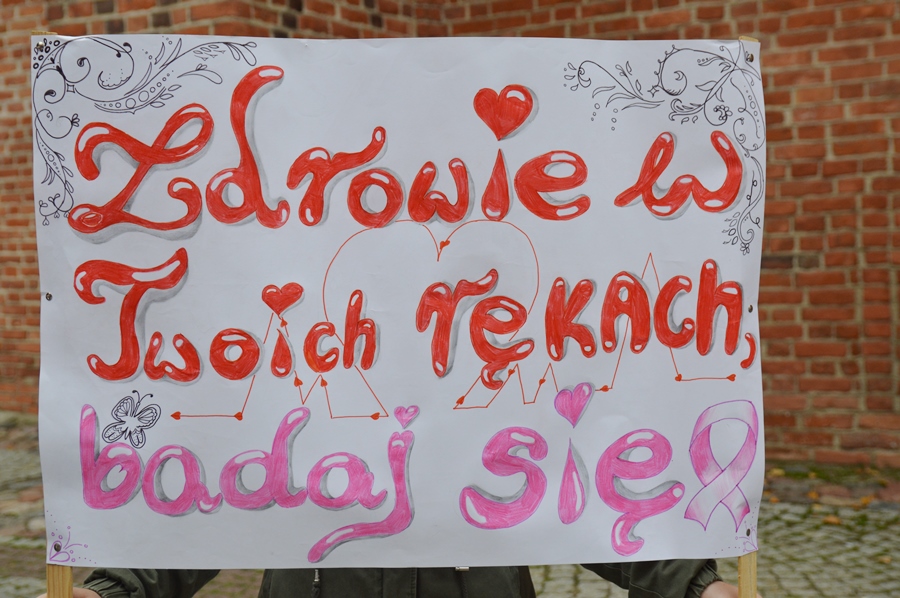 Zdrowie w
Twoich rękach,
badaj się